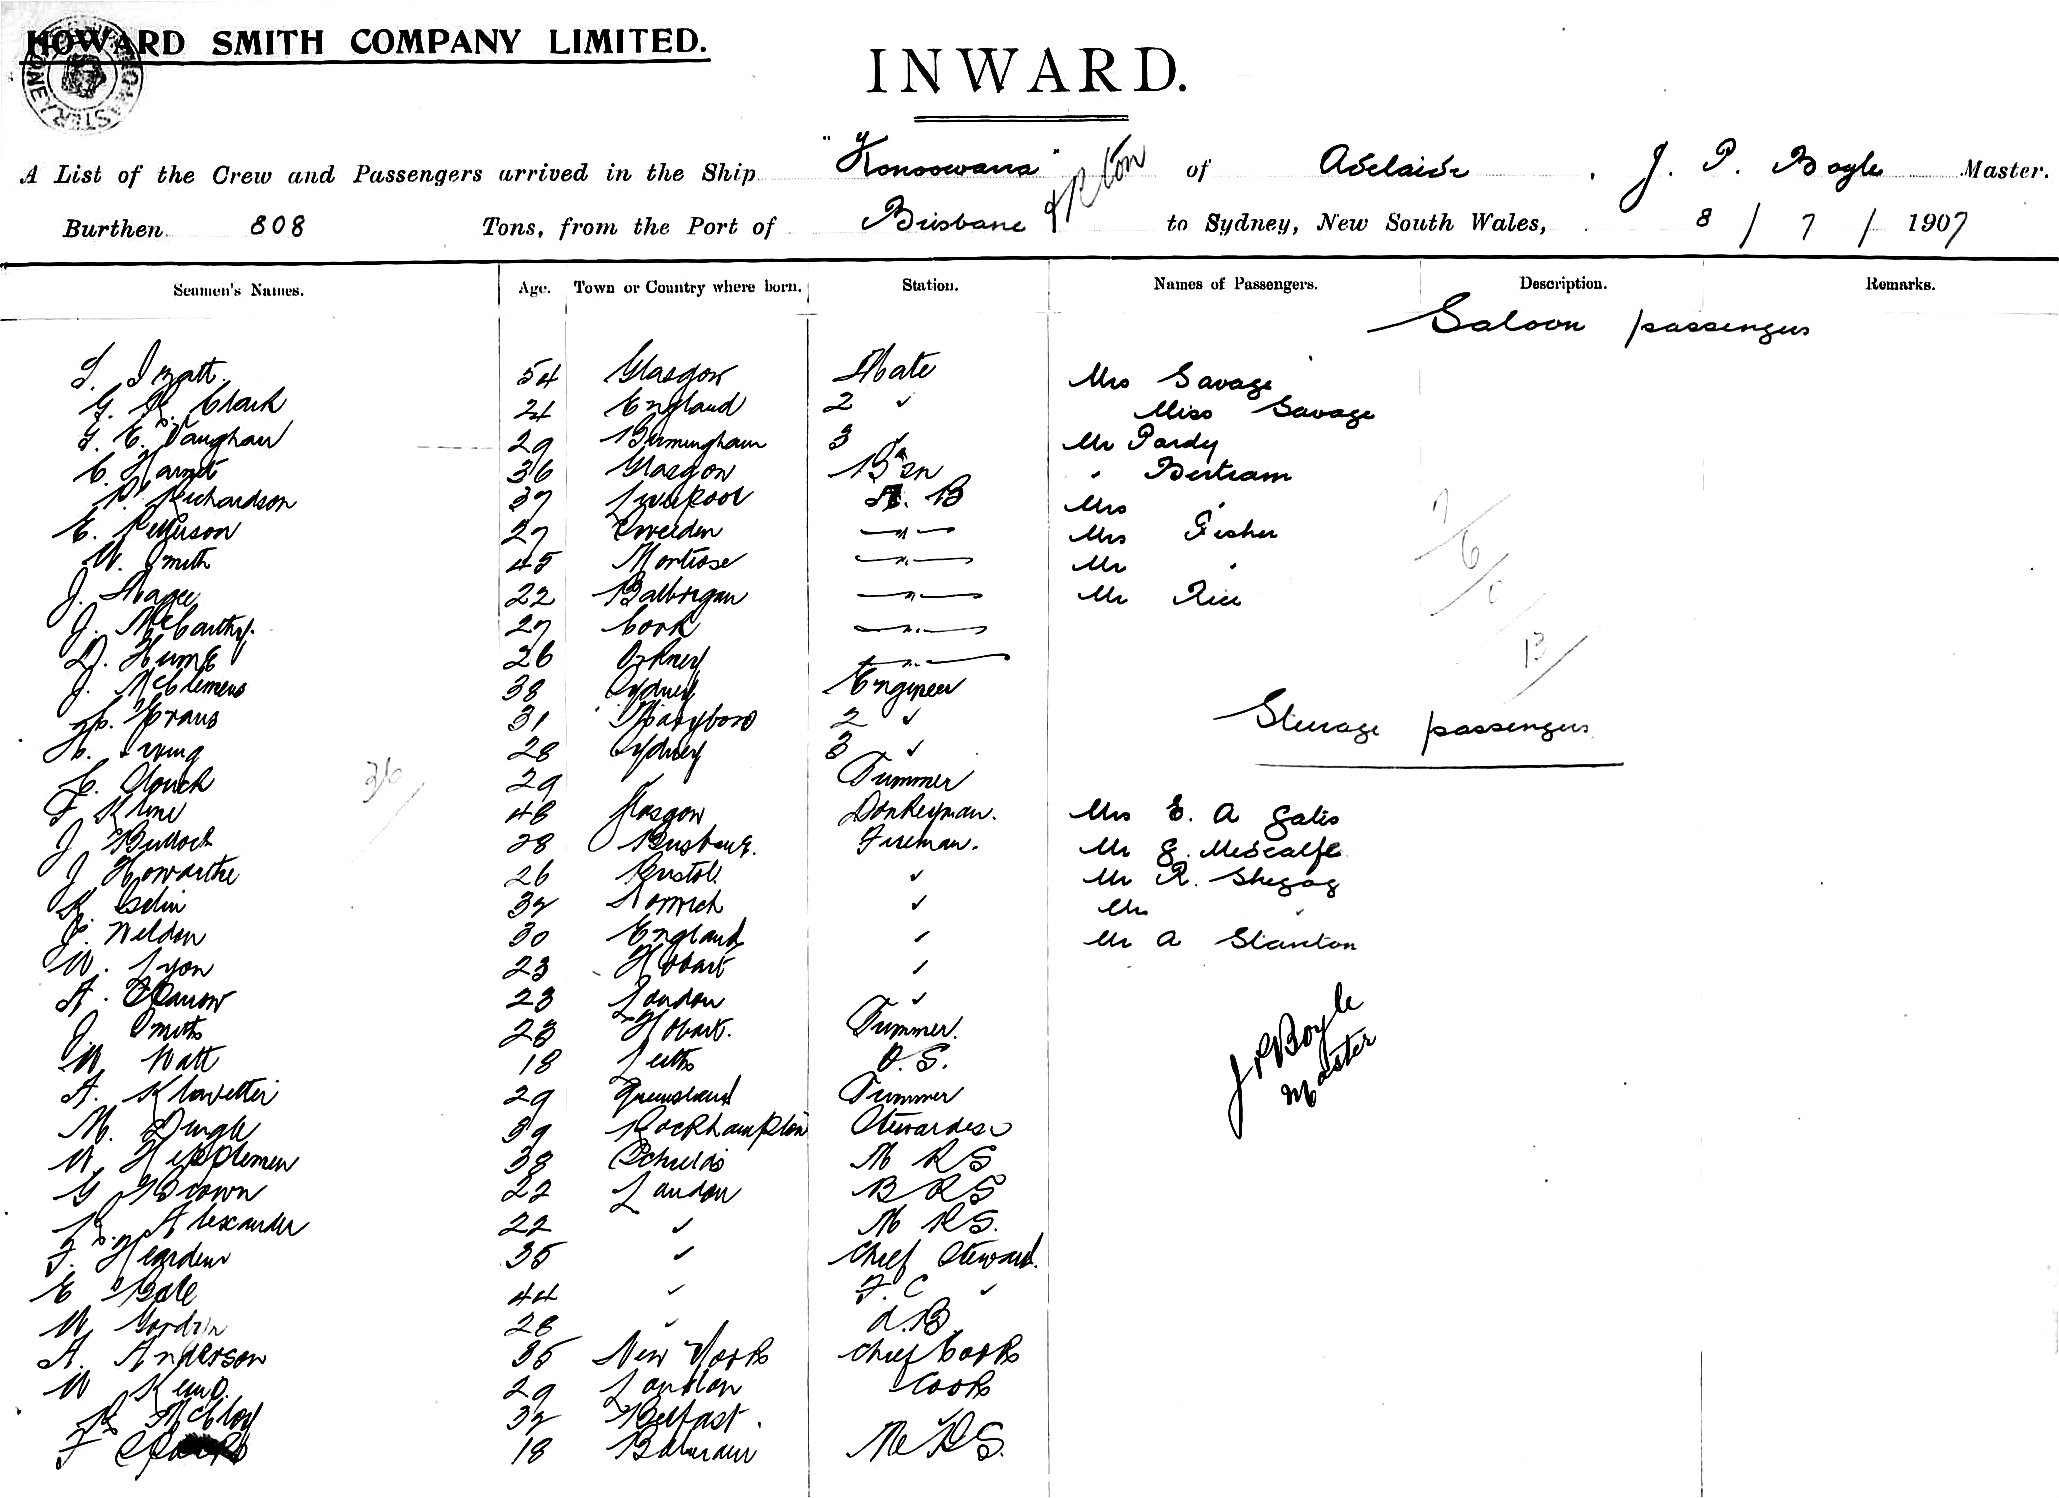 HOWARD SMITH COMPANY LIMITED.
INWARD.
A List of the Crew and Passengers arrived in the Ship "Konoowarra" of Adelaide, J. P. Boyle Master.
Burthen 808 Tons, from the Port of Brisbane & R'ton to Sydney, New South Wales, 8 / 7 / 1907
Seamen's Names. Age. Town or Country where born. Station. Names of Passengers. Description. Remarks.
Saloon passengers
54 Glasgow Mate Mrs Savage
G. Clark 21 England 2 ✓ Miss Savage
E. Vaughan 29 Birmingham 3 ✓ Mr Pardy
36 Glasgow B'sn " Bertram
Richardson 37 Liverpool A. B Mrs "
E. Petterson 27 Sweden —"— Mrs Fisher
W. Smith 45 Montrose —"— Mr "
J. Magee 22 Balbrigan —"— Mr Rice
J. McCarthy. 27 Cork —"—
D. Hume 26 Orkney —"—
J. McClemens 38 Sydney Engineer
Evans 31 Maryboro 2 ✓ Steerage passengers
Irving 28 Sydney 3 ✓
36
C. Clouch 29 Trimmer
F Kline 48 Glasgow Donkeyman. Mrs E. A Galis
J Bullock 28 Brisbane. Fireman. Mr G. Metcalfe
J Howarthe 26 Bristol ✓ Mr R. Shegog
32 Norwich ✓ Mr "
Weldon 30 England ✓ Mr A Stanton
W. Lyon 23 Hobart ✓
A. 23 London ✓
J. Smith 23 Hobart. Trimmer.
W Watt 18 Leith O. S.
A. Klavetter 29 Queensland Trimmer
M. Dingle 39 Rockhampton Stewardess
W Hepplemen 38 Schields M R S
G Brown 22 London B R S
Alexander 22 ✓ M R S.
F. Hearden 35 ✓ Chief Steward.
E Bale 44 ✓ F. C ✓
W Gordon 28 ✓ A.B
A. Anderson 35 New York Chief Cook
W Kemp. 29 London Cook
McCloy 32 Belfast.
F 18 Balmain M R S.
J P Boyle
Master